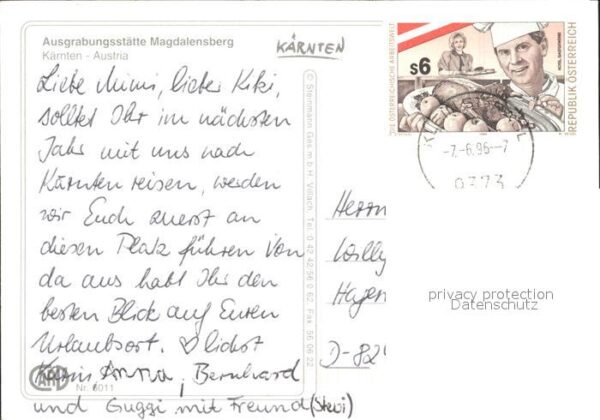 Ausgrabungsstätte Magdalensberg
Kärnten - Austria
KÄRNTEN
Liebe Mimi, lieber Kiki,
solltet Ihr im nächsten
Jahr mit uns nach
Kärnten reisen, werden
wir Euch zuerst an
diesen Platz führen von
da aus habt Ihr den
besten Blick auf Euren
Urlaubsort. ♡lichst
Karin, Anna, Bernhard
und Guggi mit Freund (Stevi)
Nr. 6011
© Steinmann Ges.m.b.H. Villach
DIE ÖSTERREICHISCHE ARBEITSWELT
S6
REPUBLIK ÖSTERREICH
-7.-6.96--7
Herrn
Willy
D-82
privacy protection
Datenschutz